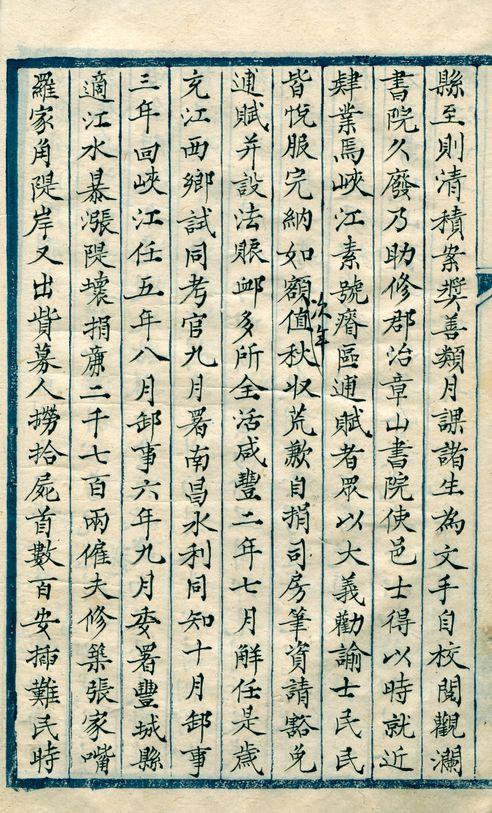 縣至則清積案獎善類月課諸生為文手自校閱觀瀾
書院久廢乃助修郡治章山書院使邑士得以時就近
肄業焉峽江素號瘠區逋賦者眾以大義勸諭士民民
皆悅服完納如額次年值秋收荒歉自捐司房筆資請豁免
逋賦并設法賑卹多所全活咸豐二年七月解任是歲
充江西鄉試同考官九月署南昌水利同知十月卸事
三年回峽江任五年八月卸事六年九月委署豐城縣
適江水暴漲隄壞捐廉二千七百兩僱夫修築張家嘴
羅家角隄岸又出貲募人撈拾屍首數百安插難民時